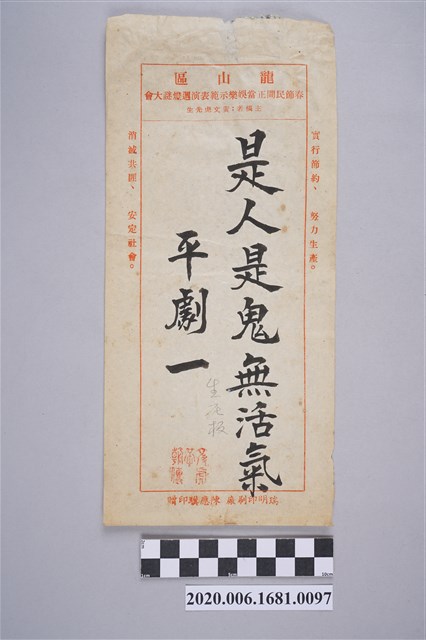 龍山區
春節民間正當娛樂示範表演週燈謎大會
主稿者:黃文虎先生
實行節約、努力生產。
是人是鬼無活氣
平劇一
生死板
消滅共匪、安定社會。
瑞明印刷廠 陳應騏印贈
2020.006.1681.0097